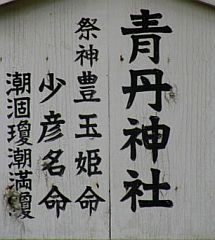 青丹神社
祭神豊玉姫命
少彦名命
潮涸瓊潮満瓊